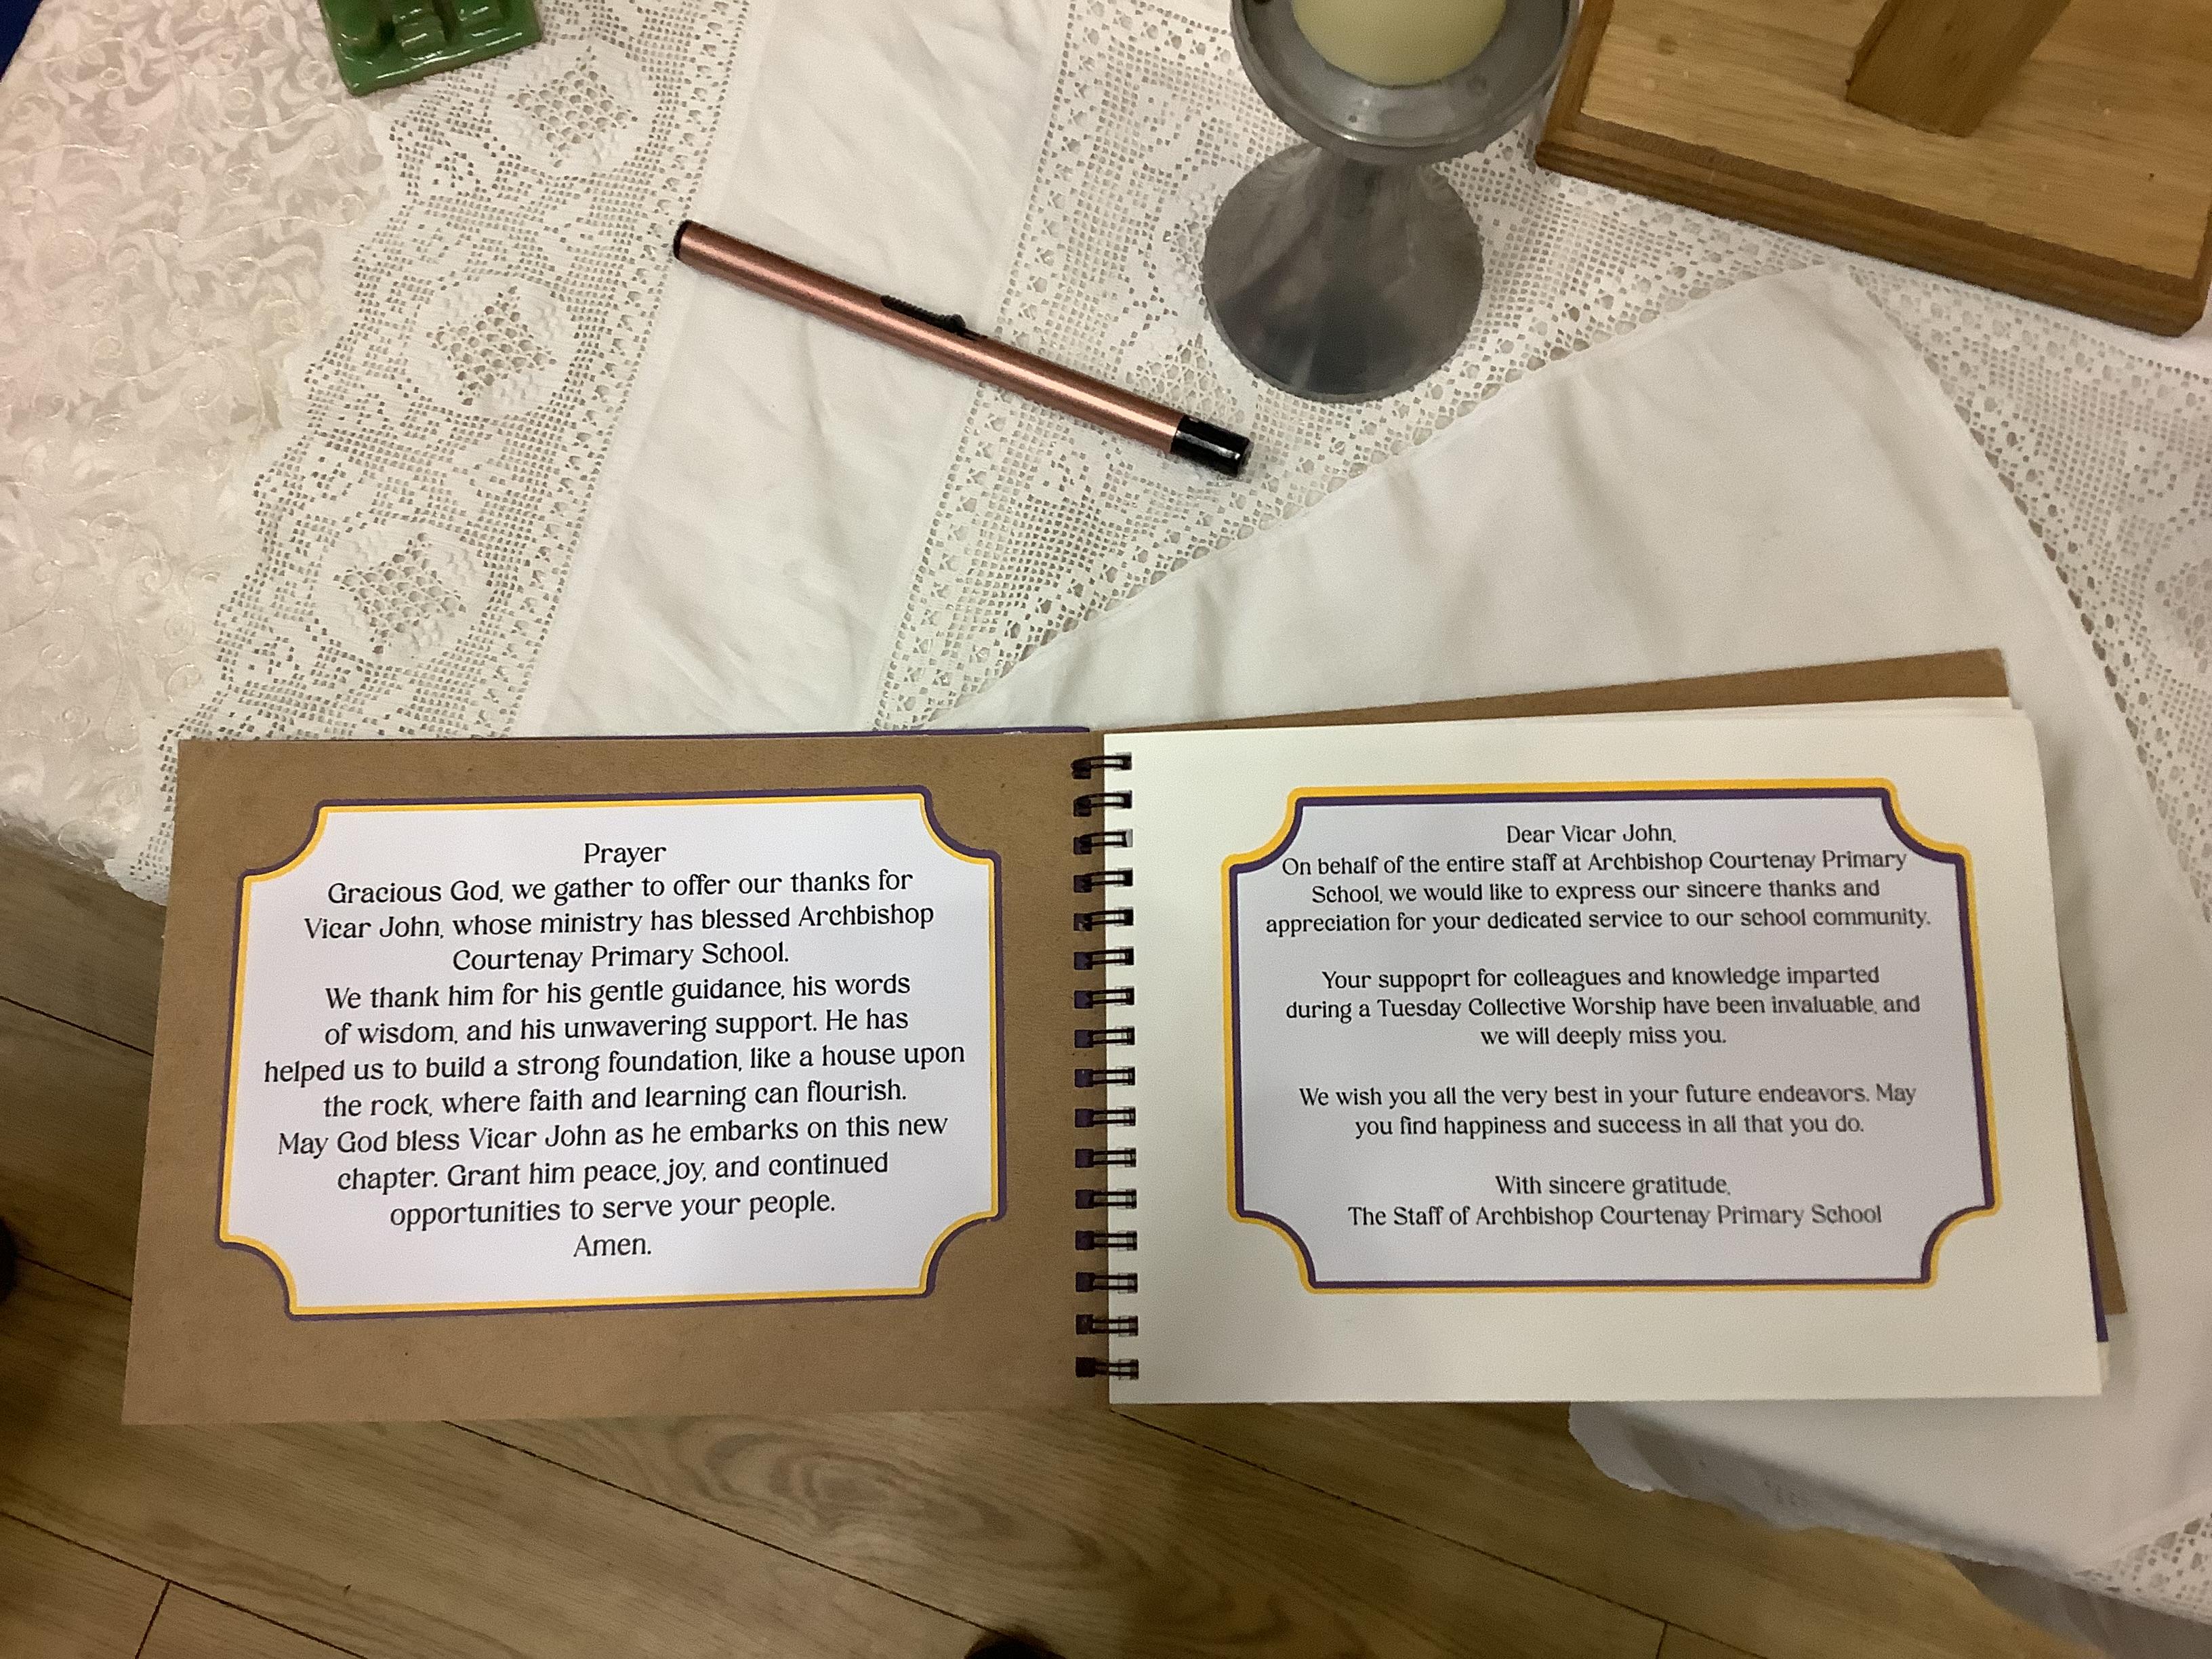 Prayer
Gracious God, we gather to offer our thanks for
Vicar John, whose ministry has blessed Archbishop
Courtenay Primary School.
We thank him for his gentle guidance, his words
of wisdom, and his unwavering support. He has
helped us to build a strong foundation, like a house upon
the rock, where faith and learning can flourish.
May God bless Vicar John as he embarks on this new
chapter. Grant him peace, joy, and continued
opportunities to serve your people.
Amen.
Dear Vicar John,
On behalf of the entire staff at Archbishop Courtenay Primary
School, we would like to express our sincere thanks and
appreciation for your dedicated service to our school community.
Your suppoprt for colleagues and knowledge imparted
during a Tuesday Collective Worship have been invaluable, and
we will deeply miss you.
We wish you all the very best in your future endeavors. May
you find happiness and success in all that you do.
With sincere gratitude,
The Staff of Archbishop Courtenay Primary School